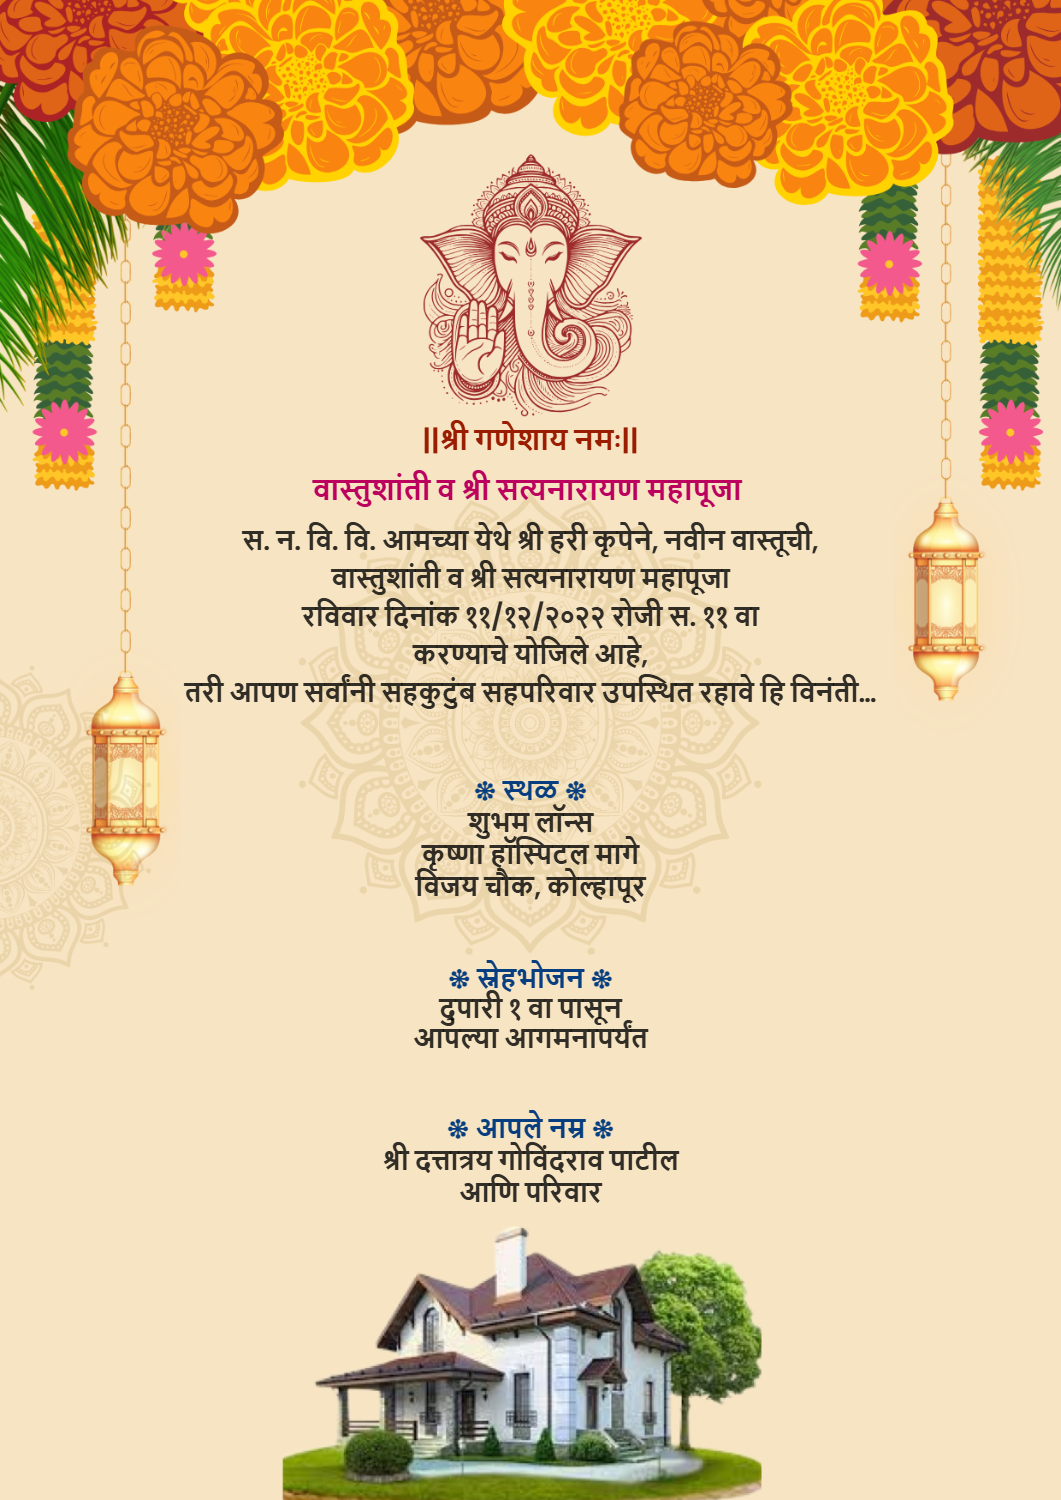 ||श्री गणेशाय नमः||
वास्तुशांती व श्री सत्यनारायण महापूजा
स. न. वि. वि. आमच्या येथे श्री हरी कृपेने, नवीन वास्तूची,
वास्तुशांती व श्री सत्यनारायण महापूजा
रविवार दिनांक ११/१२/२०२२ रोजी स. ११ वा
करण्याचे योजिले आहे,
तरी आपण सर्वांनी सहकुटुंब सहपरिवार उपस्थित रहावे हि विनंती...
❇ स्थळ ❇
शुभम लॉन्स
कृष्णा हॉस्पिटल मागे
विजय चौक, कोल्हापूर
❇ स्नेहभोजन ❇
दुपारी १ वा पासून
आपल्या आगमनापर्यंत
❇ आपले नम्र ❇
श्री दत्तात्रय गोविंदराव पाटील
आणि परिवार